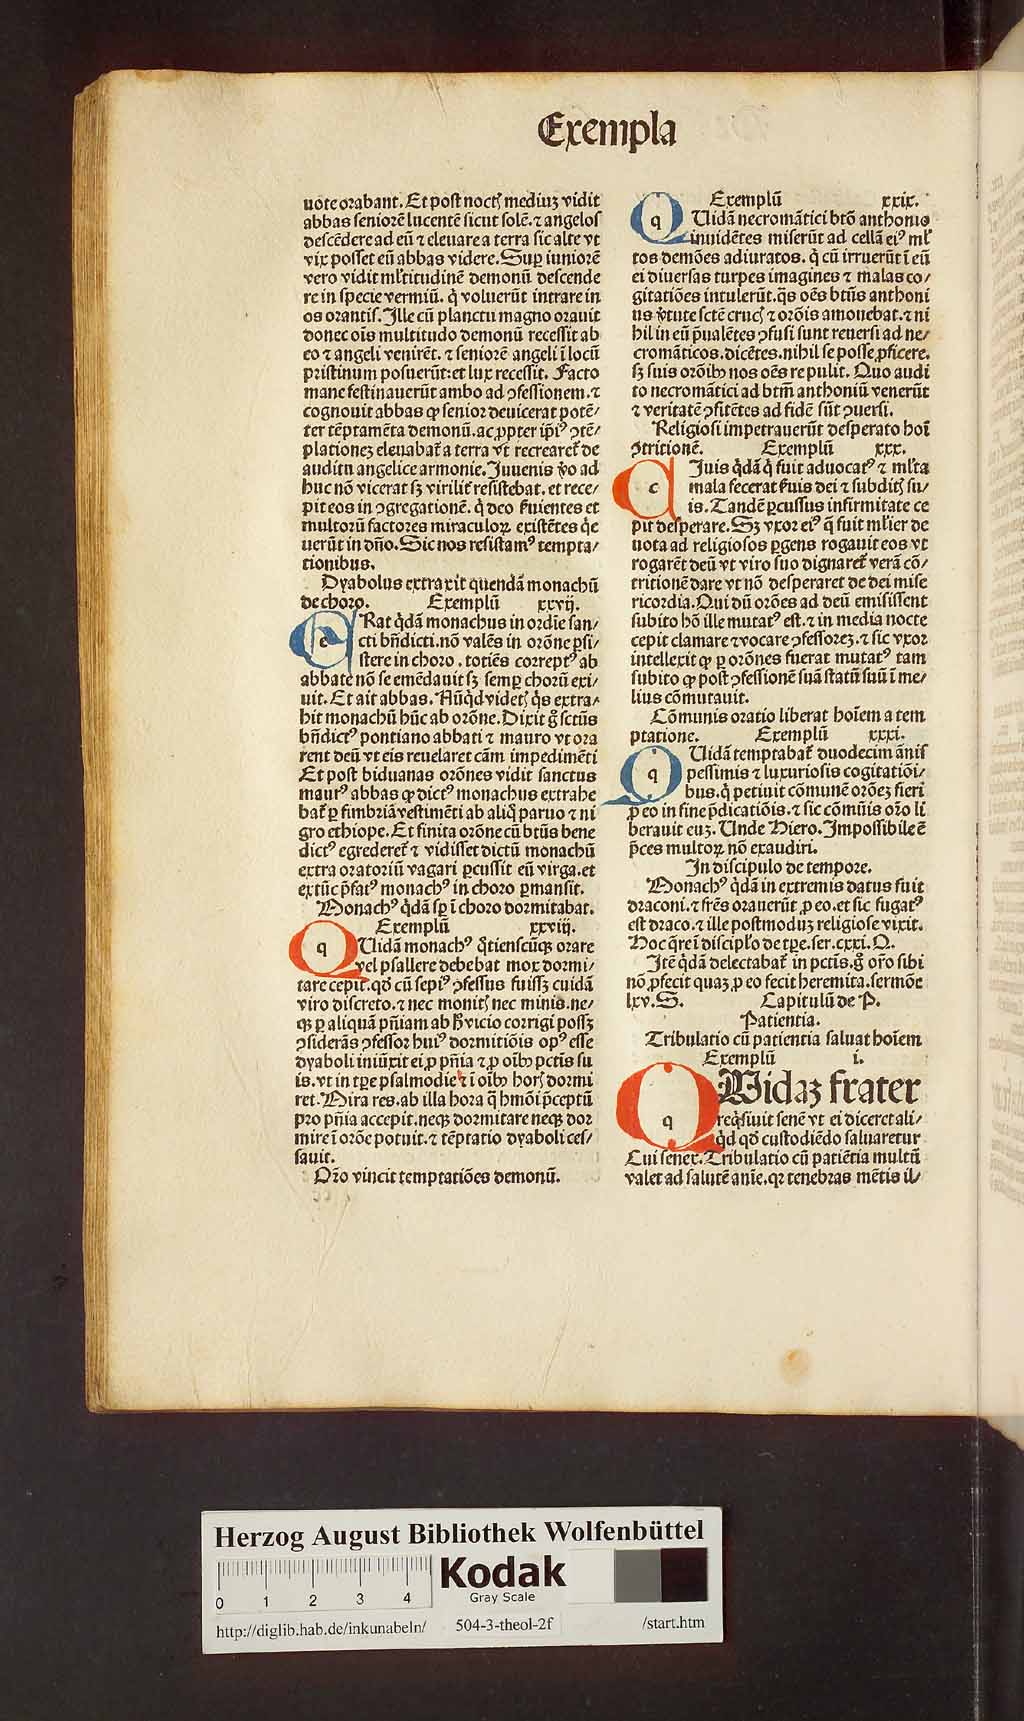 Exempla
uote orabant. Et post noctꝭ mediuꝫ vidit
abbas seniorē lucentē sicut solē. ⁊ angelos
descēdere ad eū ⁊ eleuare a terra sic alte vt
vix posset eū abbas videre. Suꝑ iuniorē
vero vidit ml̃titudinē demonū descende
re in specie vermiū. q̇ voluerūt intrare in
os orantis. Ille cū planctu magno orauit
donec oīs multitudo demonū recessit ab
eo ⁊ angeli venirēt. ⁊ seniorē angeli ī locū
pristinum posuerūt: et lux recessit. Facto
mane festinauerūt ambo ad ꝯfessionem. ⁊
cognouit abbas ꝙ senior deuicerat potē/
ter tēptamēta demonū. ac ꝓpter ip̄iꝰ ꝯtē/
plationeꝫ eleuabat̃ a terra vt recrearet̃ de
auditu angelice armonie. Iuuenis v̊o ad
huc nō vicerat sꝫ virilit̃ resistebat. et rece/
pit eos in ꝯgregationē. q̇ deo ẜuientes et
multorū factores miraculoꝝ existētes q̇e
uerūt in dn̄o. Sic nos resistamꝰ tempta/
tionibus.
Dyabolus extraxit quendā monachū
de choro. Exemplū xxvij.
e Rat q̇dā monachus in ordīe san/
cti bn̄dicti. nō valēs in orōne ꝑsi/
stere in choro. totiēs correptꝰ ab
abbate nō se emēdauit sꝫ semꝑ chorū exi/
uit. Et ait abbas. Nūq̇d videtꝭ q̇s extra/
hit monachū hūc ab orōne. Dixit g̊ sctūs
bn̄dictꝰ pontiano abbati ⁊ mauro vt ora
rent deū vt eis reuelaret cām impedimēti
Et post biduanas orōnes vidit sanctus
maurꝰ abbas ꝙ dictꝰ monachus extrahe
bat̃ ꝑ fimbriā vestimēti ab aliq̊ paruo ⁊ ni
gro ethiope. Et finita orōne cū btūs bene
dictꝰ egrederet̃ ⁊ vidisset dictū monachū
extra oratoriū vagari ꝑcussit eū virga. et
ex tūc p̄fatꝰ monachꝰ in choro ꝑmansit.
Monachꝰ q̇dā sꝑ ī choro dormitabat.
Exemplū xxviij.
q Uidā monachꝰ q̊tienscūqꝫ orare
vel psallere debebat mox dormi/
tare cepit. qđ cū sepiꝰ ꝯfessus fuissꝫ cuidā
viro discreto. ⁊ nec monitꝭ nec minis. ne/
qꝫ ꝑ aliquā pn̄iam ab h̊ vicio corrigi possꝫ
ꝯsiderās ꝯfessor huiꝰ dormitiōis opꝰ esse
dyaboli iniūxit ei ꝓ pn̄ia ⁊ ꝓ oībꝰ pctīs su
is. vt in tꝑe psalmodie ⁊ ī oībꝰ horꝭ dormi
ret. Mira res. ab illa hora q̄ hmōi p̄ceptū
pro pn̄ia accepit. neqꝫ dormitare neqꝫ dor
mire ī orōe potuit. ⁊ tēptatio dyaboli ces/
sauit.
Or̄o vincit temptatiōes demonū.
Exemplū xxix.
q Uidā necromātici btō anthonio
inuidētes miserūt ad cellā eiꝰ ml̃
tos demōes adiuratos. q̇ cū irruerūt ī eū
ei diuersas turpes imagines ⁊ malas co/
gitatiōes intulerūt. q̇s oēs btūs anthoni
us v̊tute sctē crucꝭ ⁊ orōis amouebat. ⁊ ni
hil in eū p̄ualētes ꝯfusi sunt reuersi ad ne/
cromāticos. dicētes. nihil se posse ꝓficere.
sꝫ suis orōibꝰ nos oēs repulit. Quo audi
to necromātici ad btm̄ anthoniū venerūt
⁊ veritatē ꝯfitētes ad fidē sūt ꝯuersi.
Religiosi impetrauerūt desperato hoī
ꝯtritionē. Exemplū xxx.
c Iuis q̇dā q̇ fuit aduocatꝰ ⁊ ml̃ta
mala fecerat ẜuis dei ⁊ subditꝭ su/
is. Tandē ꝑcussus infirmitate ce
pit desperare. Sꝫ vxor eiꝰ q̄ fuit ml̃ier de
uota ad religiosos ꝑgens rogauit eos vt
rogarēt deū vt viro suo dignaret̃ verā cō/
tritionē dare vt nō desperaret de dei mise
ricordia. Qui dū orōes ad deū emisissent
subito hō ille mutatꝰ est. ⁊ in media nocte
cepit clamare ⁊ vocare ꝯfessoreꝫ. ⁊ sic vxor
intellexit ꝙ ꝑ orōnes fuerat mutatꝰ tam
subito ꝙ post ꝯfessionē suā statū suū ī me/
lius cōmutauit.
Cōmunis oratio liberat hoīem a tem
ptatione. Exemplū xxxi.
q Uidā temptabat̃ duodecim ānis
pessimis ⁊ luxuriosis cogitatiōi/
bus. q̇ petiuit cōmunē orōeꝫ fieri
ꝓ eo in fine p̄dicatiōis. ⁊ sic cōmūis or̄o li
berauit euꝫ. Unde Hiero. Impossibile ē
p̄ces multoꝝ nō exaudiri.
In discipulo de tempore.
Monachꝰ q̇dā in extremis datus fuit
draconi. ⁊ fr̄es orauerūt ꝓ eo. et sic fugatꝰ
est draco. ⁊ ille postmoduꝫ religiose vixit.
Hoc q̄re ī discipl̃o de tꝑe. ser. cxxi. Q.
Itē q̇dā delectabat̃ in pctīs. g̊ or̄o sibi
nō ꝓfecit quaꝫ ꝓ eo fecit heremita. sermōe
lxv. S. Capitulū de P.
Patientia.
Tribulatio cū patientia saluat hoīem
Exemplū i.
q Uidaꝫ frater
req̇siuit senē vt ei diceret ali/
q̇d qđ custodiēdo saluaretur
Cui senex. Tribulatio cū patiētia multū
valet ad salutē anīe. qꝛ tenebras mētis il/
Herzog August Bibliothek Wolfenbüttel
0 1 2 3 4
Kodak
Gray Scale
http://diglib.hab.de/inkunabeln/ 504-3-theol-2f /start.htm